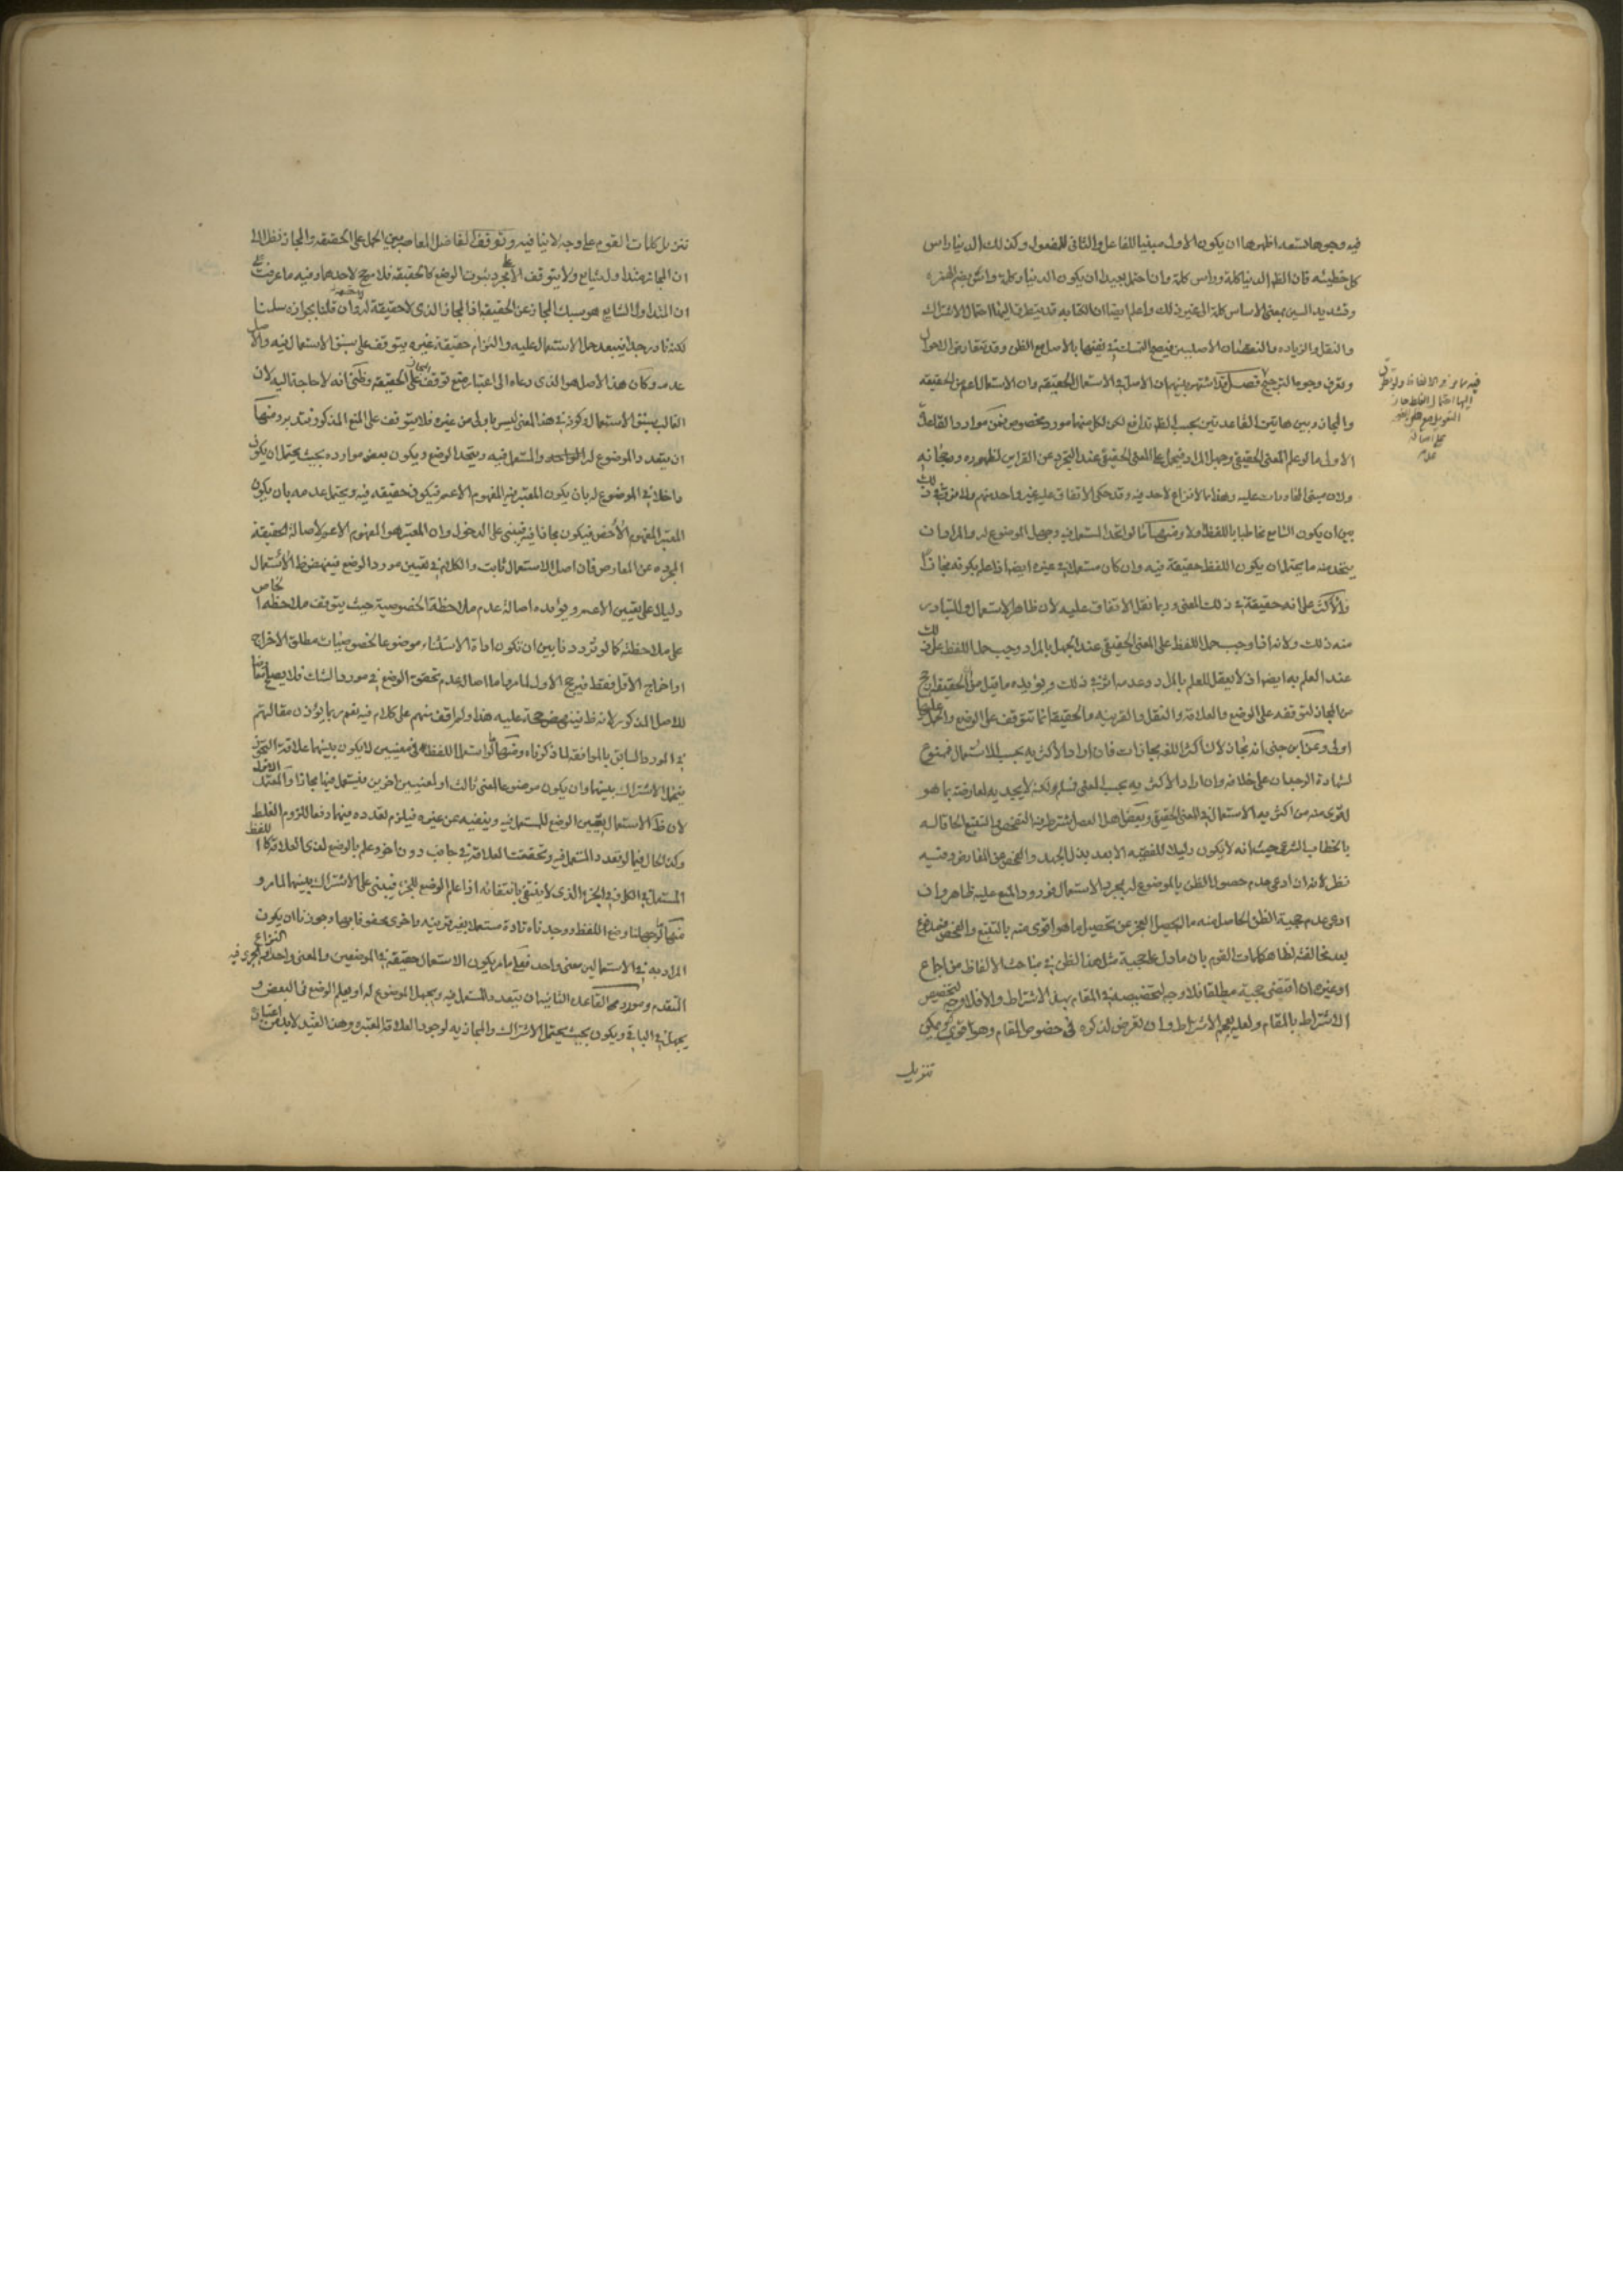 فيه وجوها تسعة اظهرها ان يكون الاول مبنيا للفاعل والثانى للمفعول وكذلك الدنيا راس
كل خطيئه فان الظ الدنيا كلمة وراس كلمة وان احتمل بعيدا ان يكون الدنيا وكلمة واس بضم الهمزه
وتشديد السين بمعنى الاساس كلمة الى غير ذلك واعلم ايضا ان الكتابه قد يتطرق اليها احتمال الاشتراك
والنقل والزياده والنقصان الاصليين فيصح التمسك فى نفيها بالاصل مع الظن وقد يتعارض الاحوال
ويعرف وجوه الترجيح فصل قد اشتهر بينهم ان الاصل فى الاستعمال الحقيقه وان الاستعمال اعم من الحقيقه
والمجاز وبين هاتين القاعدتين بحسب الظ تدافع لكن لكل منهما مورد مخصوص فمن موارد القاعدة
الاولى ما لو علم المعنى الحقيقى وجهل المراد فيحمل على المعنى الحقيقى عند التجرد عن القراين لظهوره ورجحانه
ولان مبنى المحاورات عليه وهذا مما لا نزاع لاحد فيه وقد حكى الاتفاق عليه غير واحد منهم ولا فرق فى ذلك
بين ان يكون السامع مخاطبا باللفظ او لا ومنها ما لو اتحد المستعمل فيه وجهل الموضوع له والمراد ان
يتحد منه ما يحتمل ان يكون اللفظ حقيقة فيه وان كان مستعملا فى غيره ايضا اذا علم بكونه مجازا
فالاكثر على انه حقيقة فى ذلك المعنى وربما نقل الاتفاق عليه لان ظاهر الاستعمال والمتبادر
منه ذلك ولانه اذا وجب حمل اللفظ على المعنى الحقيقى عند الجهل بالمراد وجب حمل اللفظ على ذلك
عند العلم به ايضا اذ لا يعقل للعلم بالمراد وعدمه اثر فى ذلك ويؤيده ما قيل من ان الحقيقة ارجح
من المجاز لتوقفه على الوضع والعلاقة والنقل والقرينه والحقيقة انما تتوقف على الوضع والحمل عليها
اولى وعن ابن جنى انه مجاز لان اكثر اللغه مجازات فان اراد الاكثريه بحسب الاستعمال فممنوع
لشهادة الوجدان على خلافه وان اراد الاكثريه بحسب المعنى فمسلم ولكنه لا يجديه لمعارضته بما هو
اقوى منه من اكثريه الاستعمال فى المعنى الحقيقى وبعض اهل العصر اشترط فيه التفحص والتتبع الحاقا له
بالخطاب الشرعى حيث انه لا يكون دليلا للفقيه الا بعد بذل الجهد والتفحص عن المعارض وفيه
نظر لانه ان ادعى عدم حصول الظن بالموضوع له بمجرد الاستعمال فورود المنع عليه ظاهر وان
ادعى عدم حجية الظن الحاصل منه ما لم يحصل العجز عن تحصيل ما هو اقوى منه بالتتبع والتفحص فمدفوع
بعد مخالفته لظاهر كلمات القوم بان ما دل على حجية مثل هذا الظن فى مباحث الالفاظ من اجماع
او غيره ان اقتضى حجيته مطلقا فلا وجه لتخصيصه فى المقام بهذا الاشتراط والا فلا وجه لتخصيص
الاشتراط بالمقام ولعله يعمم الاشتراط وان تعرض لذكره فى خصوص المقام وهو اقوى ويمكن
تنزيل
اليها احتمال الغلط جاز
التعويل مع ظن
على اصالة
عدمه
تنزيل كلمات القوم على وجه لا ينافيه وتوقف الفاضل المعاصر بين الحمل على الحقيقه والمجاز نظرا الى
ان المجاز متداول شايع ولا يتوقف الا على مجرد ثبوت الوضع كالحقيقة فلا مرجح لاحدهما وفيه ما عرفت
ان المتداول الشايع هو سبك المجاز عن الحقيقة اذ المجاز الذى لا حقيقة له وان قلنا بجوازه سلمنا
لكنه نادر جدا فيبعد حمل الاستعمال عليه والتزام حقيقة غيره يتوقف على سبق الاستعمال فيه والاصل
عدمه وكان هذا الاصل هو الذى دعاه الى اعتبار منع توقف المجاز على الحقيقه وظنى انه لا حاجة اليه لان
الغالب سبق الاستعمال وكونه فى هذا المعنى ليس باولى من غيره فلا يتوقف على المنع المذكور فتدبر ومنها
ان يتعدد الموضوع له والمستعمل فيه ويتحد الوضع ويكون بعض موارده بحيث يحتمل ان يكون
داخلا فى الموضوع له بان يكون المعتبر فيه المفهوم الاعم فيكون حقيقه فيه ويحتمل عدمه بان يكون
المعتبر المفهوم الاخص فيكون مجازا فيه فيبنى على الدخول وان المعتبر هو المفهوم الاعم لاصالة الحقيقة
المجرده عن المعارض فان اصل الاستعمال ثابت والكلام فى تعيين مورد الوضع فينهض ظ الاستعمال
دليلا على تعيين الاعم ويؤيده اصالة عدم ملاحظة الخصوصية حيث يتوقف ملاحظه الخاص
على ملاحظته كما لو ترددنا بين ان تكون اداة الاستثناء موضوعا لخصوصيات مطلق الاخراج
او اخراج الاقل فقط فيرجح الاول لما مر واما اصالة عدم تحقق الوضع فى مورد الشك فلا يصلح معارضا
للاصل المذكور لانه ظ فينهض حجة عليه هذا ولم اقف منهم على كلام فيه نعم ربما يؤذن مقالتهم
فى المورد السابق بالموافقة لما ذكرناه ومنها ما لو استعمل اللفظ فى معنيين لا يكون بينهما علاقة التجوز
فيتحمل الاشتراك بينهما وان يكون موضوعا لمعنى ثالث او لمعنيين اخرين فيستعمل فيهما مجازا والمعتمد الاول
لان ظ الاستعمال يعين الوضع للمستعمل فيه وينفيه عن غيره فيلزم تعدده فيهما دفعا للزوم الغلط
وكذا الحال فيما لو تعدد المستعمل فيه وتحققت العلاقة فى جانب دون اخر وعلم بالوضع لذى العلاقة كاللفظ
المستعمل فى الكل وفى الجزء الذى لا ينتفى بانتفائه اذا علم الوضع للجزء فيبنى على الاشتراك بينهما لما مر و
منها ما لو جهلنا وضع اللفظ ووجدناه تارة مستعملا بغير قرينه واخرى محفوفا بها وجوزنا ان يكون
المراد به فى الاستعمالين معنى واحد فعلى ما مر يكون الاستعمال حقيقة فى الموضعين والمعنى واحدا ويجرى فيه النزاع
المتقدم ومورد القاعدة الثانيه ان يتعدد المستعمل فيه ويجهل الموضوع له او يعلم الوضع فى البعض و
يجهل فى الباقى ويكون بحيث يحتمل الاشتراك والمجازيه لوجود العلاقة المعتبرة وهذا القيد لا بد من اعتباره